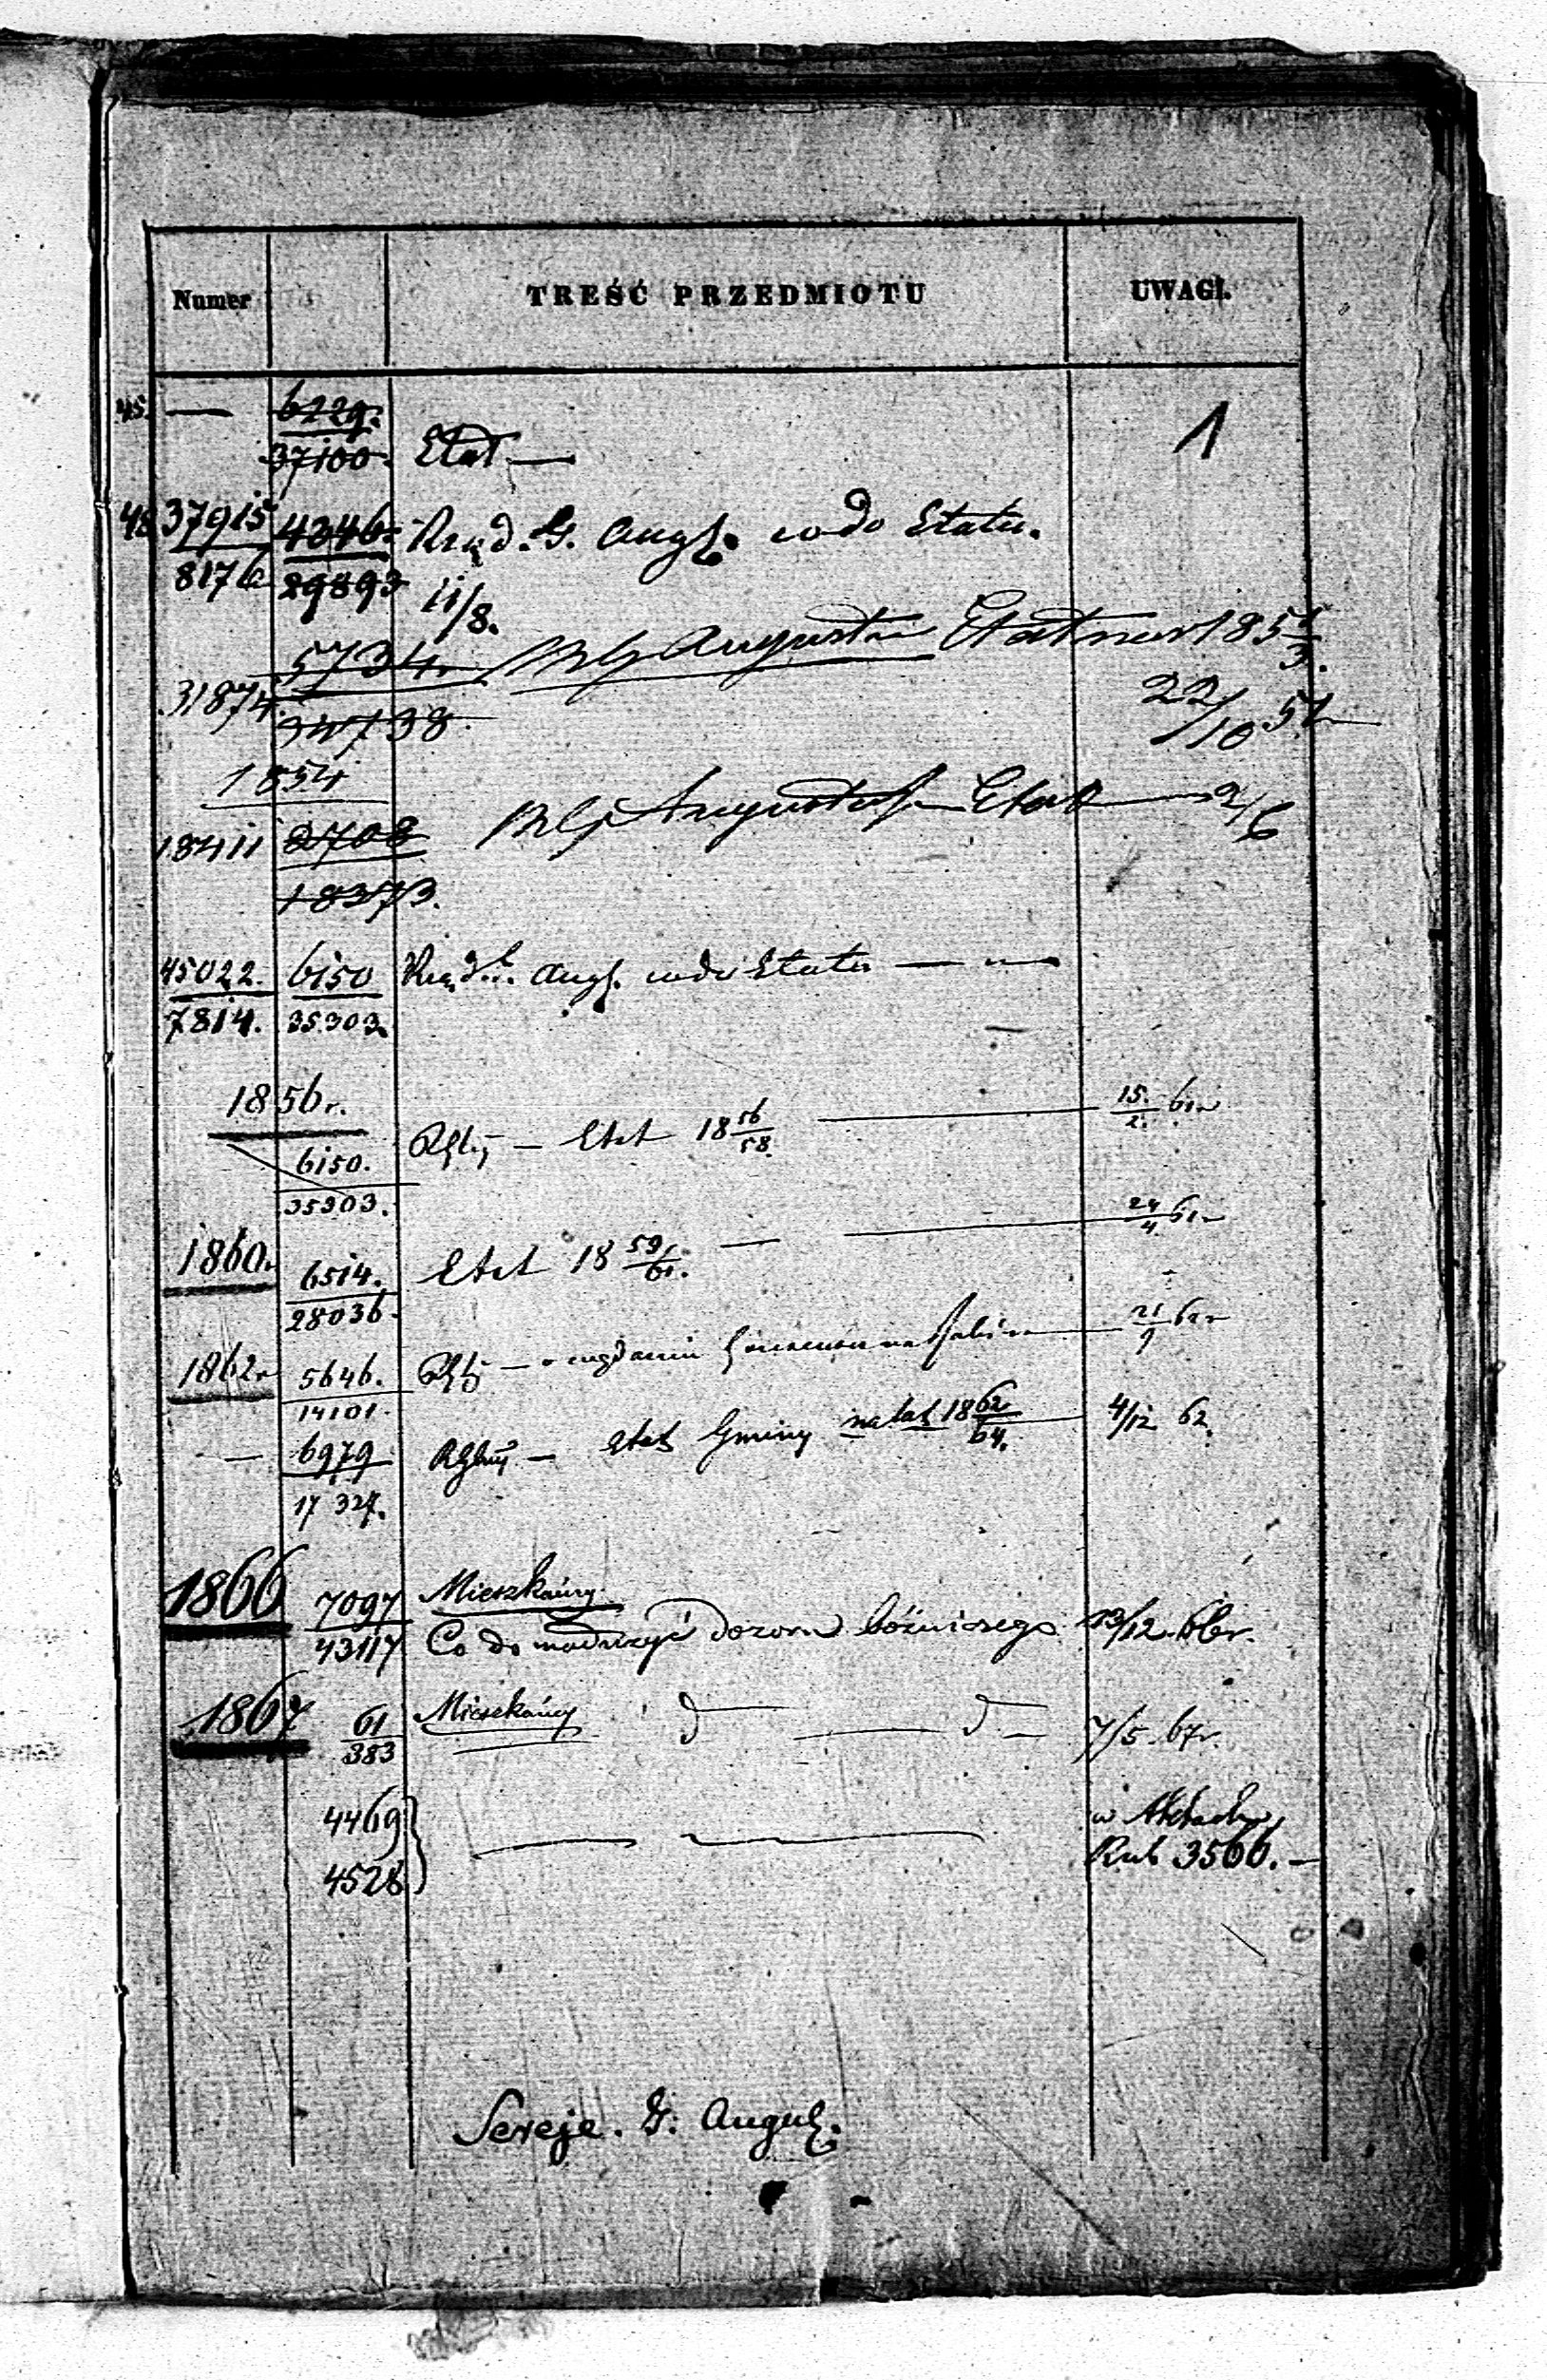 Numer TREŚĆ PRZEDMIOTU UWAGI.
45. — 6229. 1
37100. Etat —
48 37915 4346 Rząd. G. Aug. co do Etatu.
8176 29893 11/8.
5734. Augustow Etat 185
31874. 34738. 22/10 51
1854
18411 2708 Etat 2/6
18373.
45022. 6150 Rząd. G. Aug. co do Etatu —
7814. 35303.
1856 r.
6150. — Etat 18 56/58. — 15./2. 61 r
35303.
1860. 6514. Etat 18 59/61. — 24/4 61 r
28036.
1862 r 5646. — o wydanie na Rabina — 21/9 62 r
14101.
— 6979 — Etat Gminy na lat 18 62/64. 4/12 62.
17 327.
1866 7097 Mieszkańcy
43117 Co do nadużyć Dozoru bóżniczego. 13/12 66 r.
1867 61 Mieszkańcy d — — d — 7/5 67 r.
383
4469 w Aktach
4528 Rub 3566. —
Sereje. G. August.